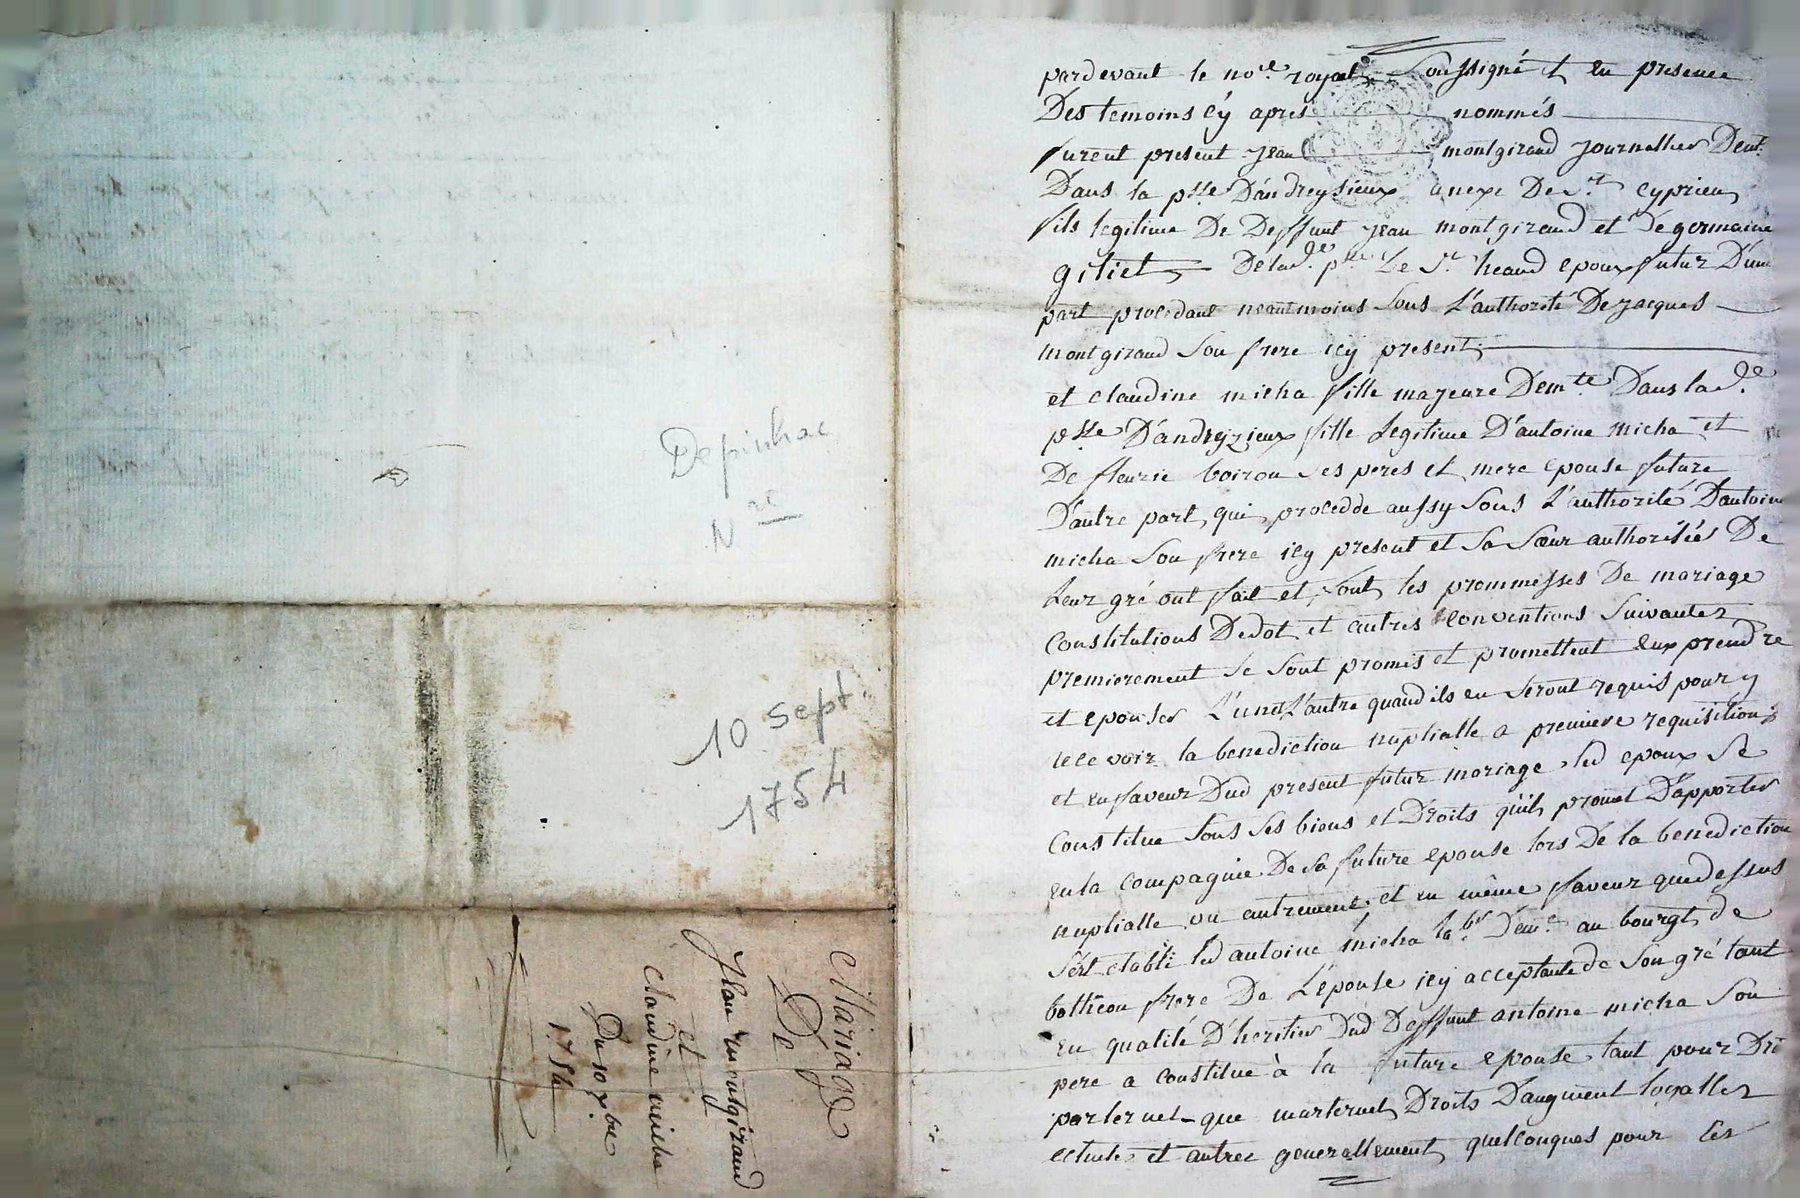 Depinhac
Nre
10 sept.
1754
Mariage
De
Jean montgiraud
et
claudine micha
Du 10 xbre
1754
pardevant le nore. royal Soussigné et en presence
Des temoins cy apres nommés
furent present Jean montgiraud Journallier Demt.
Dans la psse D'andreysieux anexe De St. cyprien
fils legitime De Deffunt Jean montgiraud et De germaine
giliet De lad.e psse. Le Sr. heaud epoux futur D'une
part procedant neantmoins Sous L'authorité De jacques
montgiraud Son frere icy present
et claudine micha fille majeure Demte. Dans lad.e
psse D'andreyzieux fille Legitime D'antoine micha et
De fleurie boirou ses peres et mere epouse future
D'autre part, qui procedde aussy Sous L'authorité D'antoine
micha Son frere icy present et Sa Sœur authorisées De
Leur gré ont fait et font les prommesses De mariage
Constitutions Dedot et autres conventions Suivantes
premierement Se Sont promis et promettent eux prendre
et epouser L'un L'autre quand ils en Seront requis pour y
recevoir la benediction nuptialle a premiere requisition
et en faveur Dud present futur mariage led epoux Se
Constitue Tous Ses biens et Droits quils promet D'apporter
en la compagnie De Sa future epouse lors De la benediction
nuptialle ou autrement et en même faveur que dessus
S'est etabli led antoine micha labr. Demt. au bourgt de
botheon frere De L'epouse icy acceptante de Son gré tant
en qualité D'heritier Dud Deffunt antoine micha Son
pere a constitué à la future epouse tant pour Dre
parternel que marternel Droits D'augment loyalles
echutes et autres generallement quelconques pour Les